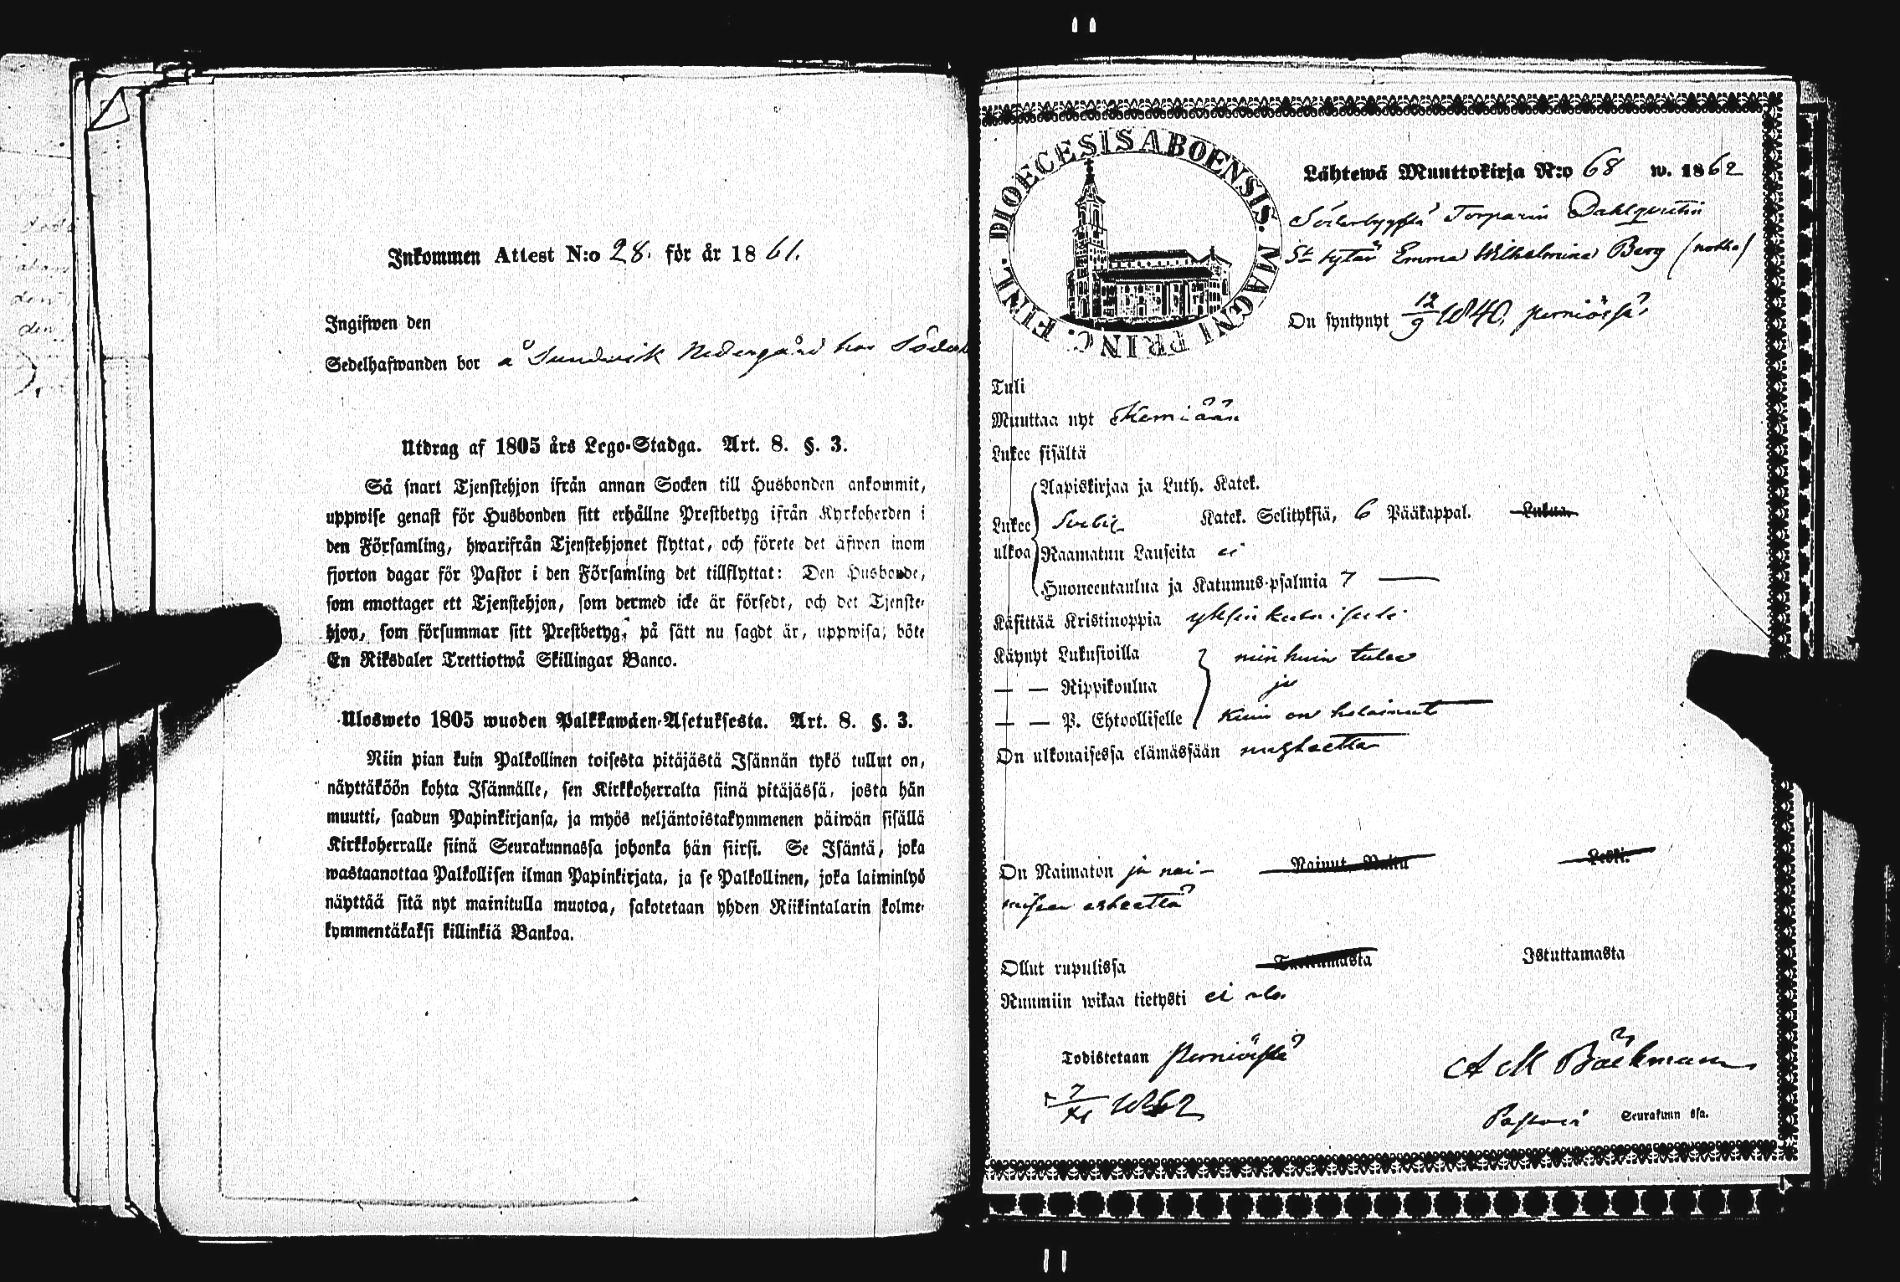 Inkommen Attest N:o 28. för år 1861.
Ingifwen den
Sedelhafwanden bor å Sundvik Nedergård hos
Utdrag af 1805 års Lego-Stadga. Art. 8. §. 3.
Så snart Tjenstehjon ifrån annan Socken till Husbonden ankommit,
uppwise genast för Husbonden sitt erhållne Prestbetyg ifrån Kyrkoherden i
den Församling, hwarifrån Tjenstehjonet flyttat, och förete det äfwen inom
fjorton dagar för Pastor i den Församling det tillflyttat: Den Husbonde,
som emottager ett Tjenstehjon, som dermed icke är försedt, och det Tjenste-
hjon, som försummar sitt Prestbetyg, på sätt nu sagdt är, uppwisa, böte
En Riksdaler Trettiotwå Skillingar Banco.
Ulosweto 1805 wuoden Palkkawäen-Asetuksesta. Art. 8. §. 3.
Niin pian kuin Palkollinen toisesta pitäjästä Isännän tykö tullut on,
näyttäköön kohta Isännälle, sen Kirkkoherralta siinä pitäjässä, josta hän
muutti, saadun Papinkirjansa, ja myös neljäntoistakymmenen päiwän sisällä
Kirkkoherralle siinä Seurakunnassa johonka hän siirsi. Se Isäntä, joka
wastaanottaa Palkollisen ilman Papinkirjata, ja se Palkollinen, joka laiminlyö
näyttää sitä nyt mainitulla muotoa, sakotetaan yhden Riikintalarin kolme-
kymmentäkaksi killinkiä Bankoa.
FINL. DIOECESIS ABOENSIS. MAGNI PRINC.
Lähtewä Muuttokirja N:o 68 w. 1862
Torparin Dahlqvistin
tytär Emma Wilhelmina Berg
On syntynyt 12/9 1840, perniössä
Tuli
Muuttaa nyt Kemiään
Lukee sisältä
Lukee ulkoa
Aapiskirjaa ja Luth. Katek.
Svebig Katek. Selityksiä, 6 Pääkappal. Lukua.
Raamatun Lauseita ei
Huoneentaulua ja Katumus-psalmia 7
Käsittää Kristinoppia yksinkertaisesti
Käynyt Lukusioilla niinkuin tulee
— — Rippikoulua ja
— — P. Ehtoollisella kuin on halainnut
On ulkonaisessa elämässään nuhteetta
On Naimaton ja nai- Nainut, Naitu Leski.
misen esteettä
Ollut rupulissa Tarttumasta Istuttamasta
Ruumiin wikaa tietysti ei ole
Todistetaan Perniöstä
1862
A M Bäckman
Pastori Seurakunn ssa.